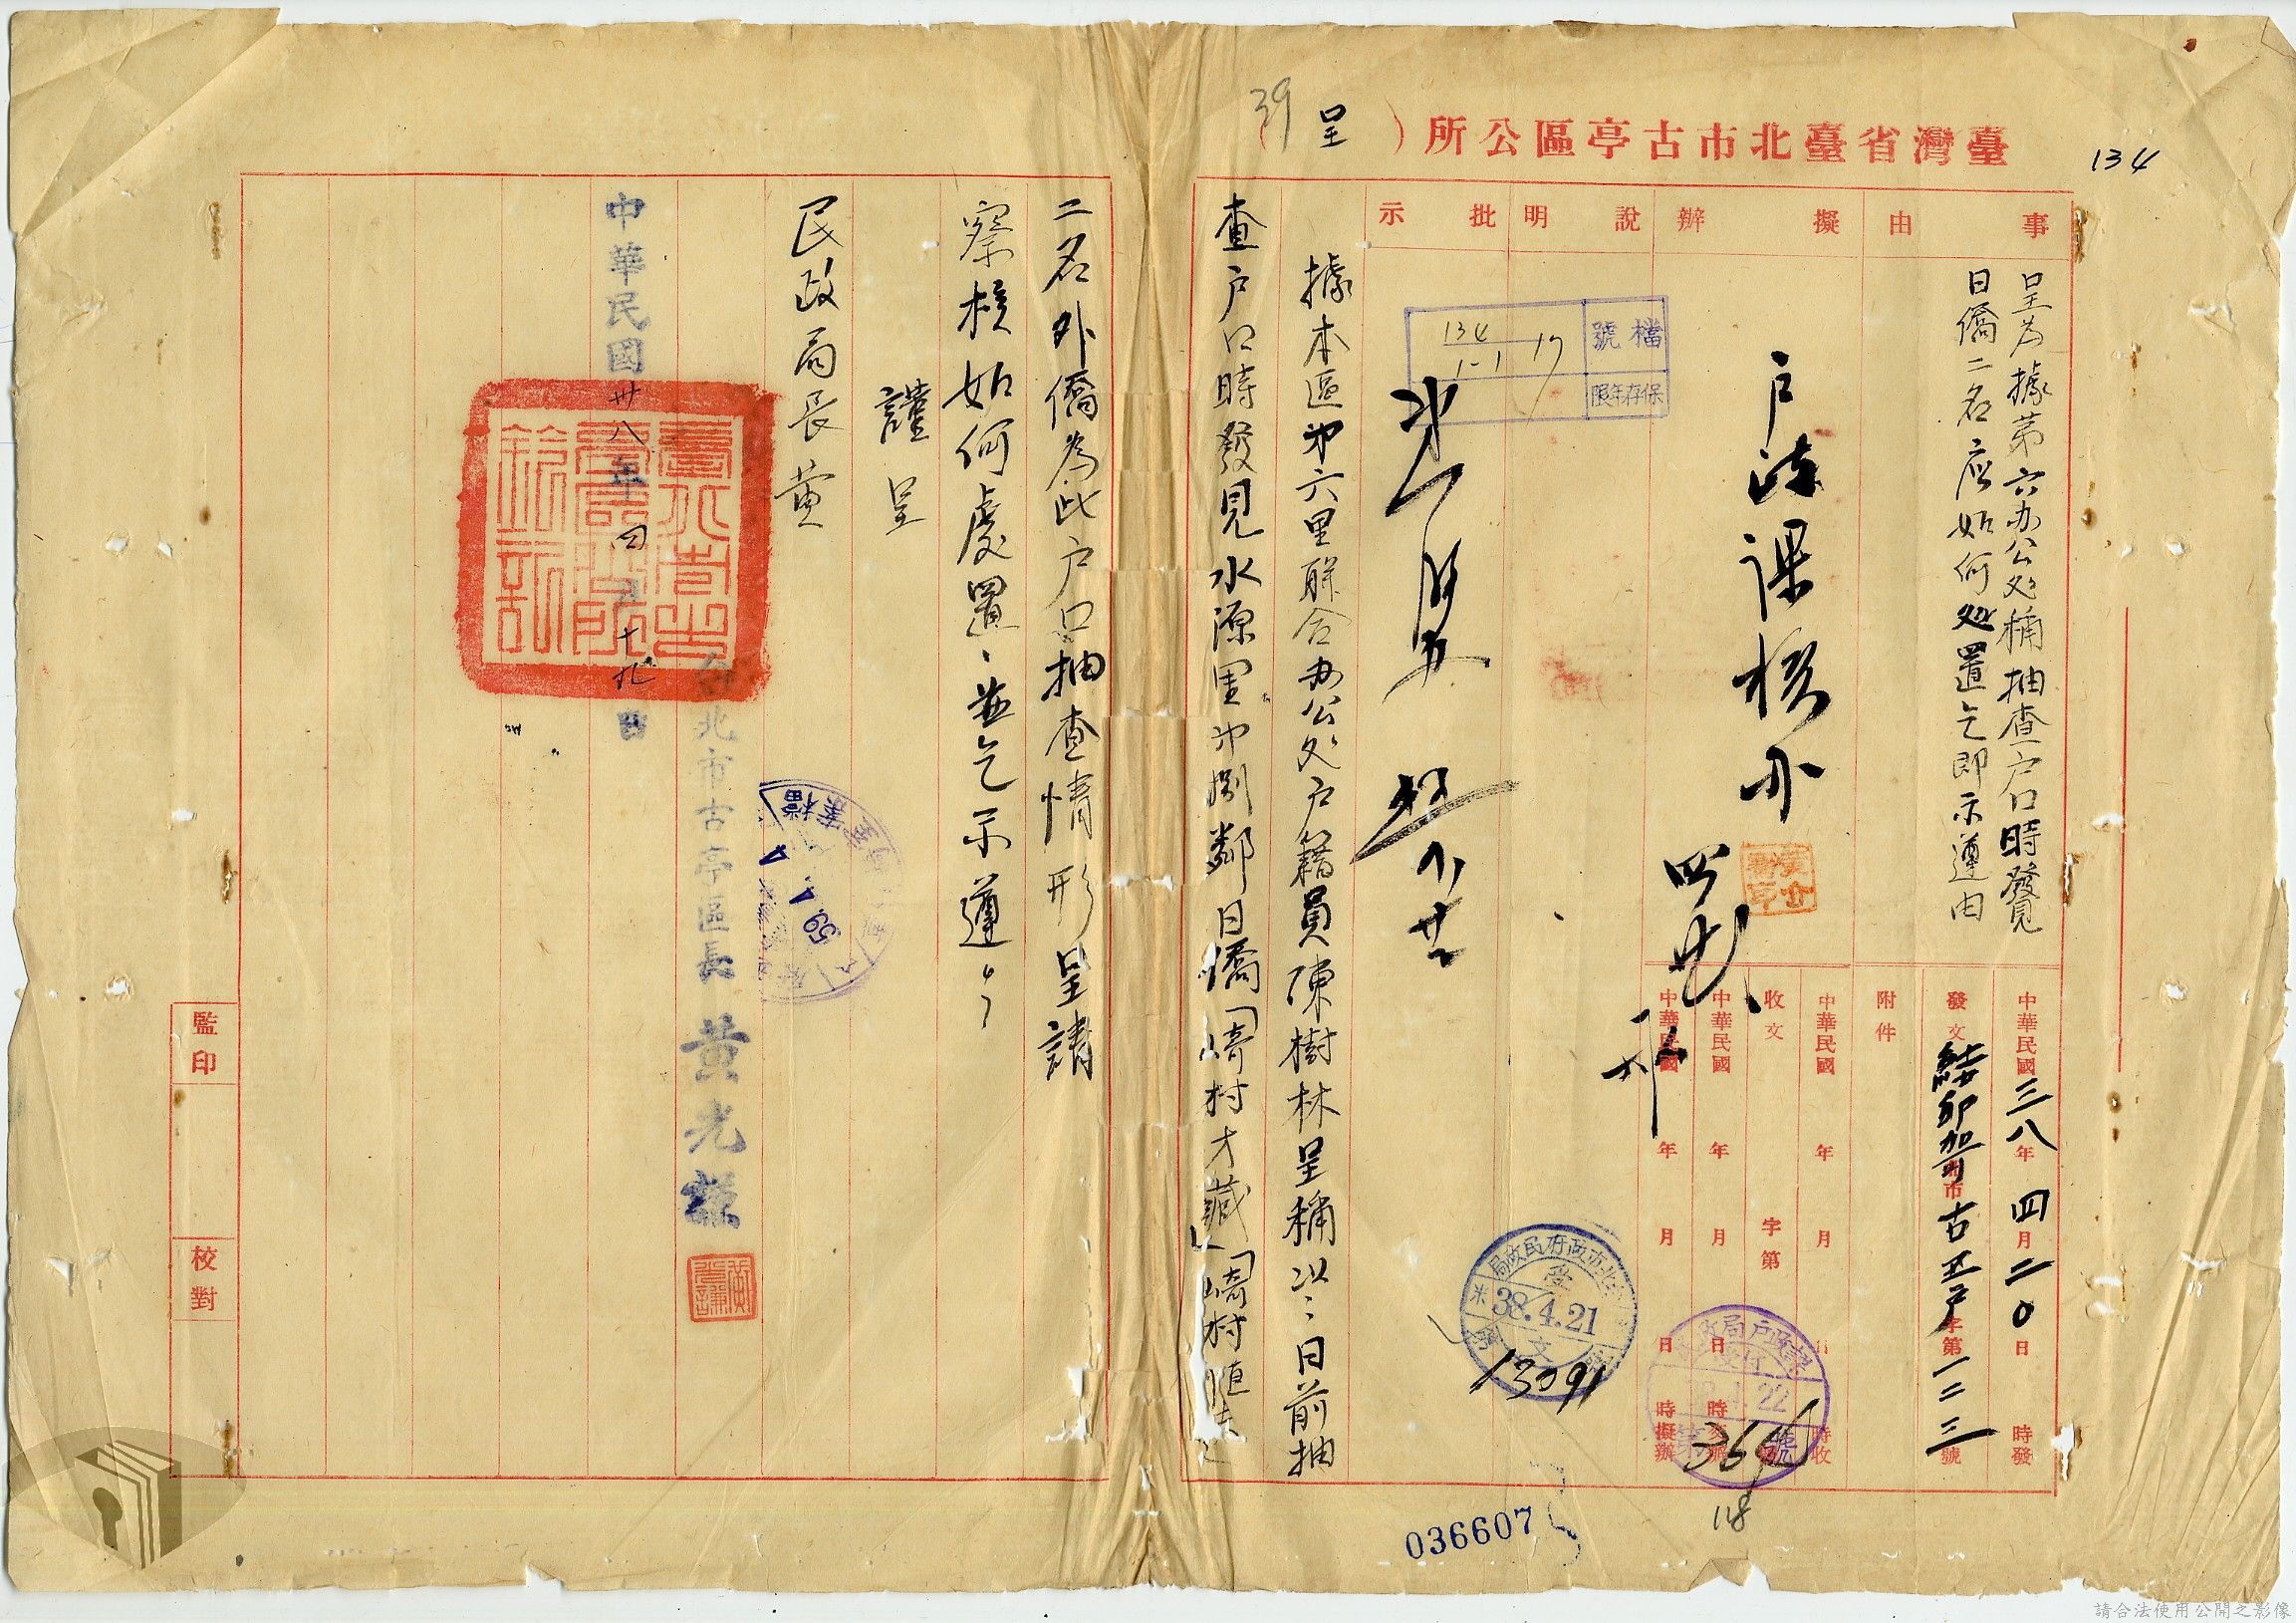 134
臺灣省臺北市古亭區公所
(呈)
39
事由
擬辦
說明
批示
呈為據第六办公处稱抽查户口時發覺
日僑二名应如何処置乞即示遵由
中華民國三八年四月二〇日 時發
發文
古亭户字第一二三號
附件
中華民國 年 月 日 時收
收文 字第 號
中華民國 年 月 日 時
中華民國 年 月 日 時擬辦
户政課核办
檔號
134
1-1
17
保存年限
臺北市政府民政局
38.4.21
13091
民政局户政課
4.22
364
118
036607
據本區第六里聯合办公处户籍員陳樹林呈稱以:日前抽
查户口時發見水源里第捌鄰日僑「崎村才藏」「崎村
二名外僑為此户口抽查情形呈請
察核如何處置、並乞示遵
謹呈
民政局長黄
台北市古亭區長 黃光謙
中華民國卅八年四月十九日
臺北市古亭區公所鈐記
檔案
59.
監印
校對
請合法使用公開之影像